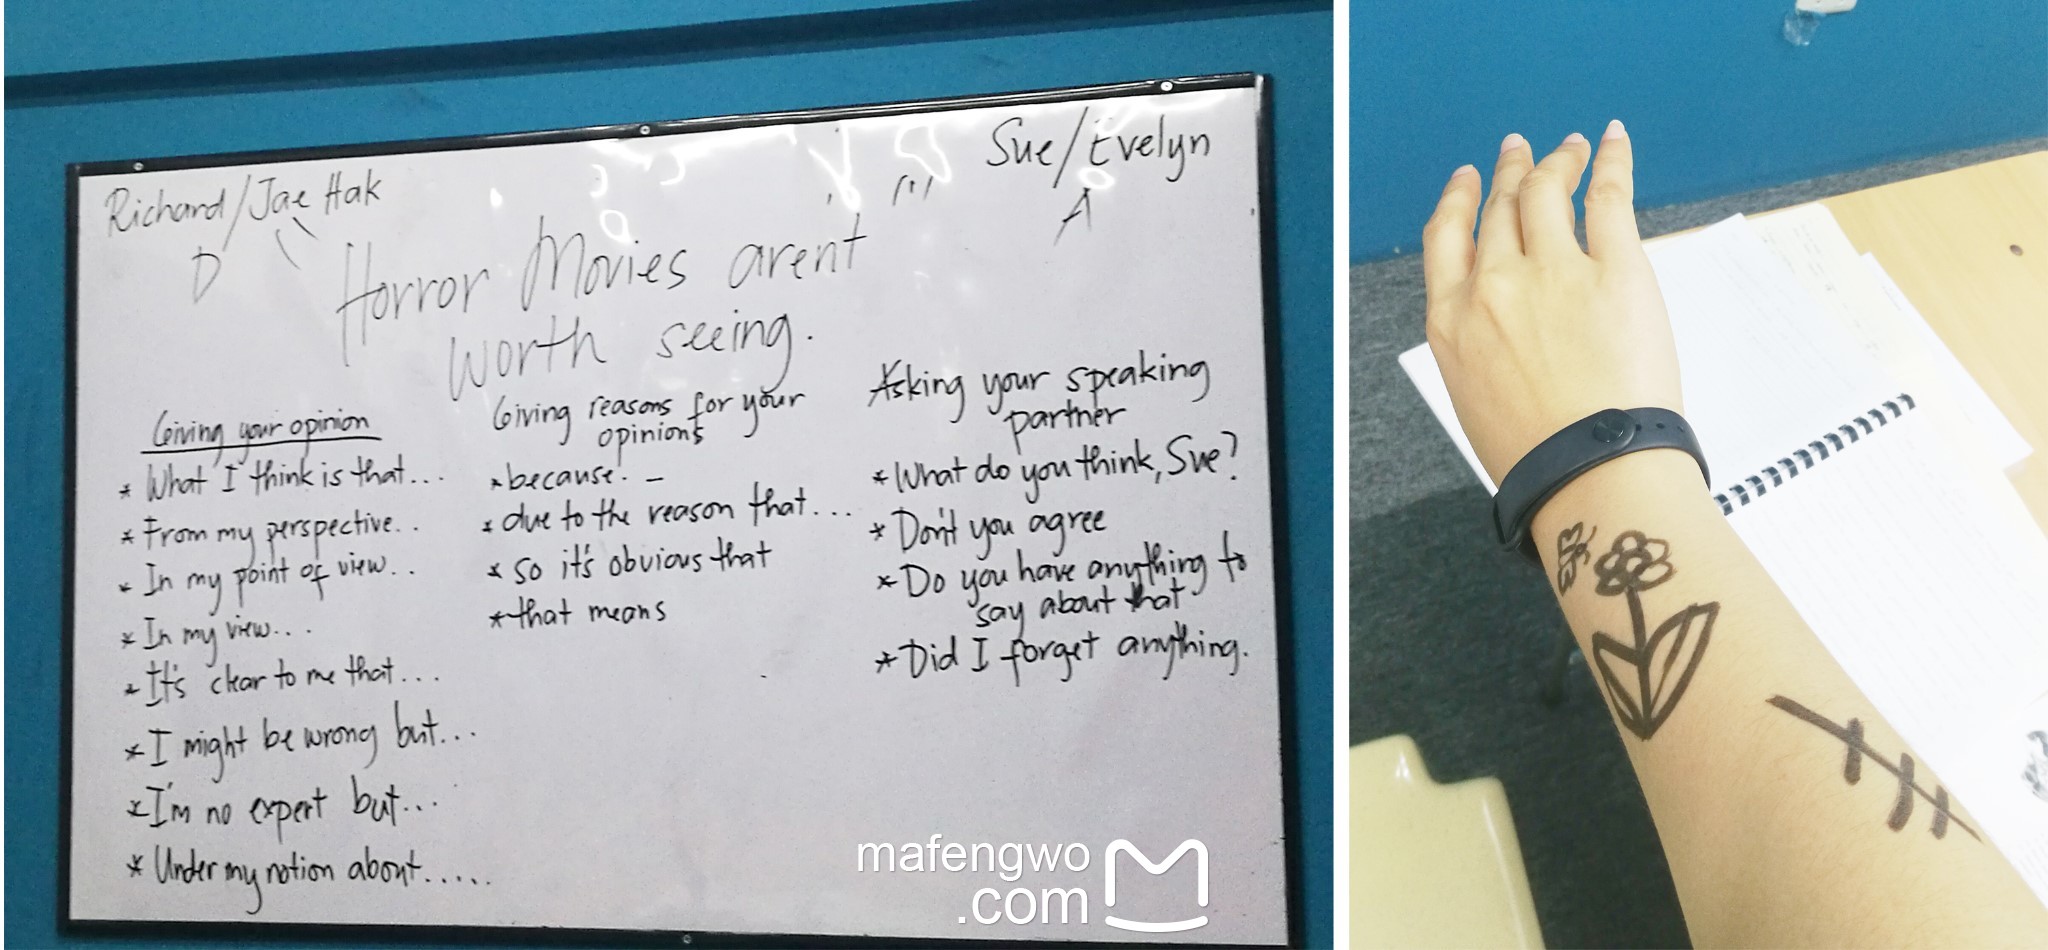 Richard/Jae Hak
D
Sue/Evelyn
A
Horror Movies arent
worth seeing.
Giving your opinion
* What I think is that...
* From my perspective..
* In my point of view..
* In my view...
* It's clear to me that...
* I might be wrong but...
* I'm no expert but...
* Under my notion about.....
Giving reasons for your
opinions
* because. _
* due to the reason that...
* so it's obvious that
* that means
Asking your speaking
partner
* What do you think, Sue?
* Don't you agree
* Do you have anything to
say about that
* Did I forget anything.
mafengwo
.com